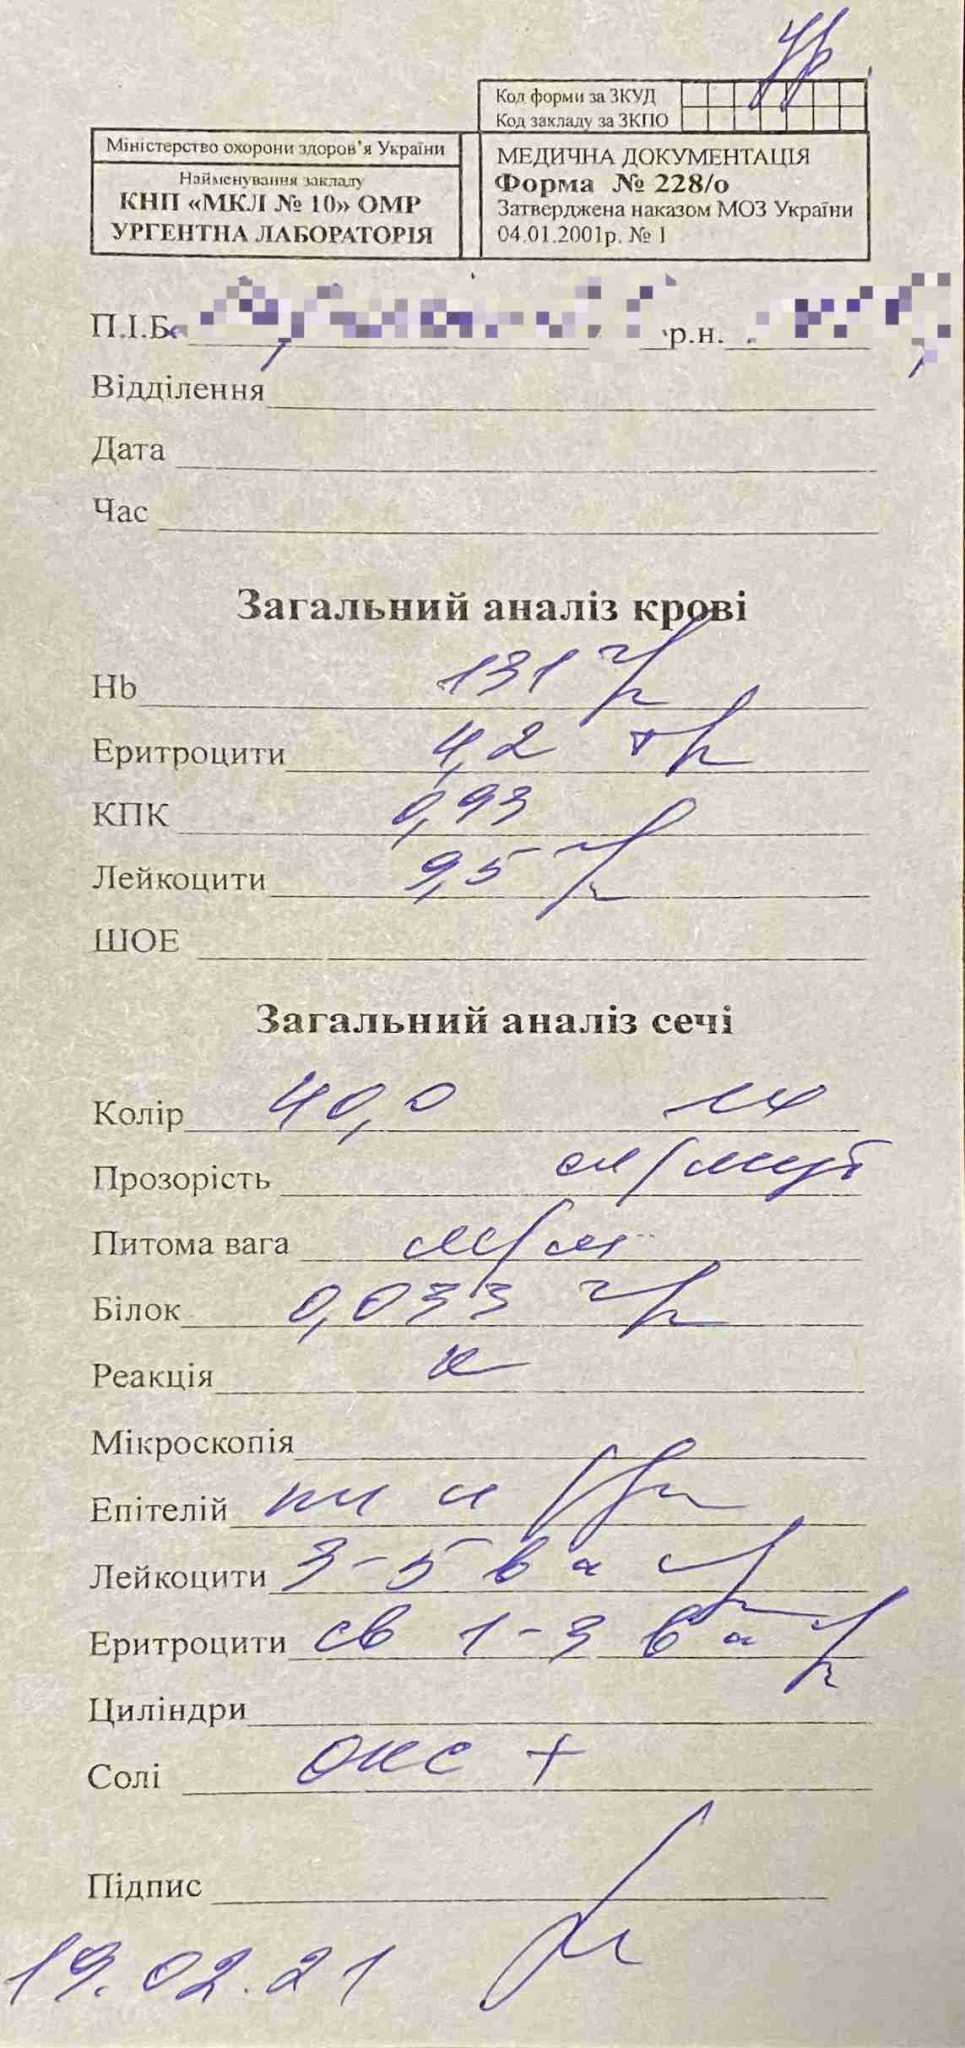 Код форми за ЗКУД
Код закладу за ЗКПО
Міністерство охорони здоров'я України
Найменування закладу
КНП «МКЛ № 10» ОМР
УРГЕНТНА ЛАБОРАТОРІЯ
МЕДИЧНА ДОКУМЕНТАЦІЯ
Форма № 228/о
Затверджена наказом МОЗ України
04.01.2001р. № 1
П.І.Б. р.н.
Відділення
Дата
Час
Загальний аналіз крові
Hb 131 г/л
Еритроцити 4,2 т/л
КПК 0,93
Лейкоцити 9,5 г/л
ШОЕ
Загальний аналіз сечі
Колір 40,0
Прозорість сл/мут
Питома вага м/м
Білок 0,033 г/л
Реакція к
Мікроскопія
Епітелій
Лейкоцити 3-5 в п/
Еритроцити св 1-3 в п/
Циліндри
Солі окс +
Підпис
19.02.21